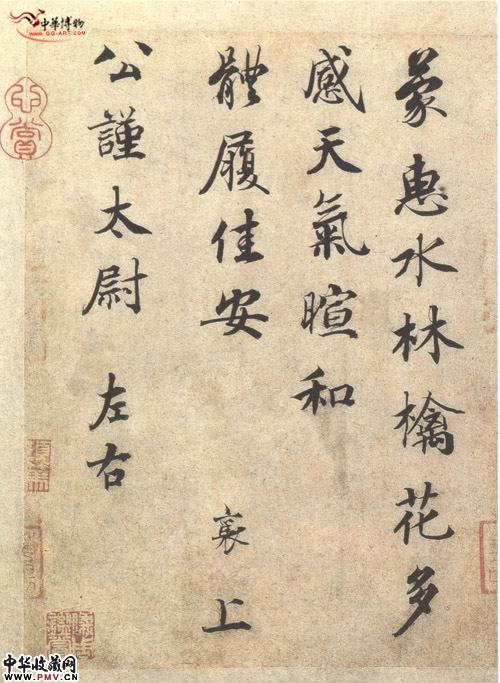 蒙惠水林檎花多
感天氣暄和
體履佳安
襄 上
公謹太尉 左右
中華博物
www.gg-art.com
中华收藏网
www.PMV.cn